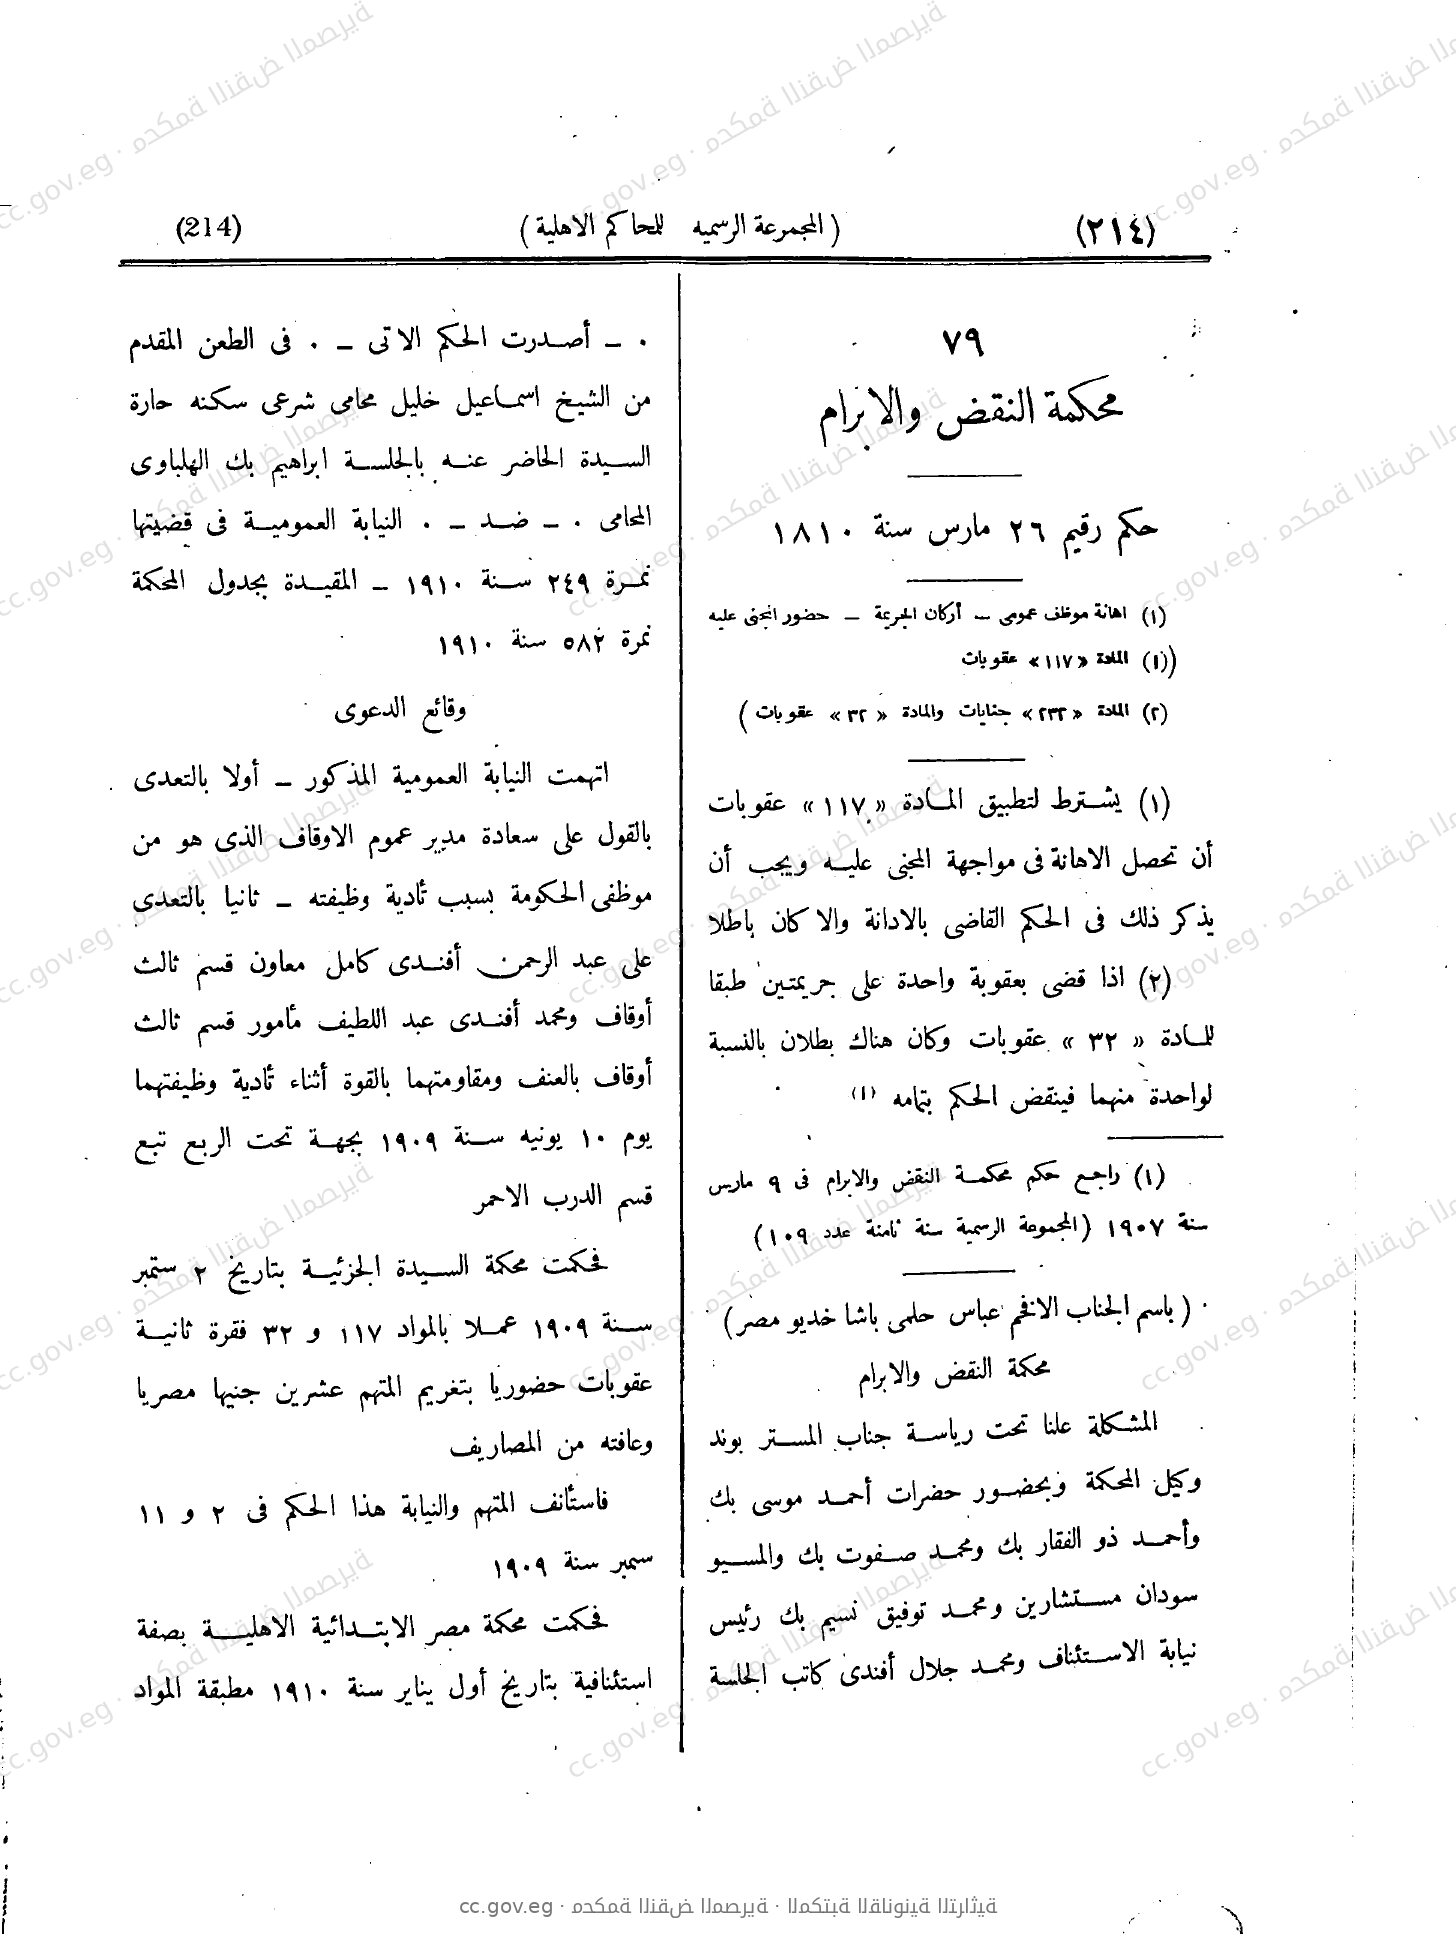 (٢١٤) ( المجموعة الرسميه للمحاكم الاهلية ) (214)
٧٩
محكمة النقض والابرام
حكم رقيم ٢٦ مارس سنة ١٨١٠
(١) اهانة موظف عمومى — أركان الجريمة — حضور المجنى عليه
((١) المادة «١١٧» عقوبات
(٢) المادة «٢٣٢» جنايات والمادة «٣٢» عقوبات )
(١) يشترط لتطبيق المادة «١١٧» عقوبات
أن تحصل الاهانة فى مواجهة المجنى عليه ويجب أن
يذكر ذلك فى الحكم القاضى بالادانة والا كان باطلا
(٢) اذا قضى بعقوبة واحدة على جريمتين طبقا
للمادة « ٣٢ » عقوبات وكان هناك بطلان بالنسبة
لواحدة منهما فينقض الحكم بتمامه (١)
(١) راجع حكم محكمة النقض والابرام فى ٩ مارس
سنة ١٩٠٧ (المجموعة الرسمية سنة ثامنة عدد ١٠٩)
( باسم الجناب الافخم عباس حلمى باشا خديو مصر )
محكمة النقض والابرام
المشكلة علنا تحت رياسة جناب المستر بوند
وكيل المحكمة وبحضور حضرات أحمد موسى بك
وأحمد ذو الفقار بك ومحمد صفوت بك والمسيو
سودان مستشارين ومحمد توفيق نسيم بك رئيس
نيابة الاستئناف ومحمد جلال أفندى كاتب الجلسة
٠ — أصدرت الحكم الاتى — ٠ فى الطعن المقدم
من الشيخ اسماعيل خليل محامى شرعى سكنه حارة
السيدة الحاضر عنه بالجلسة ابراهيم بك الهلباوى
المحامى ٠ — ضد — ٠ النيابة العمومية فى قضيتها
نمرة ٢٤٩ سنة ١٩١٠ — المقيدة بجدول المحكمة
نمرة ٥٨٢ سنة ١٩١٠
وقائع الدعوى
اتهمت النيابة العمومية المذكور — أولا بالتعدى
بالقول على سعادة مدير عموم الاوقاف الذى هو من
موظفى الحكومة بسبب تأدية وظيفته — ثانيا بالتعدى
على عبد الرحمن أفندى كامل معاون قسم ثالث
أوقاف ومحمد أفندى عبد اللطيف مأمور قسم ثالث
أوقاف بالعنف ومقاومتهما بالقوة أثناء تأدية وظيفتهما
يوم ١٠ يونيه سنة ١٩٠٩ بجهة تحت الربع تبع
قسم الدرب الاحمر
فحكمت محكمة السيدة الجزئية بتاريخ ٢ ستمبر
سنة ١٩٠٩ عملا بالمواد ١١٧ و ٣٢ فقرة ثانية
عقوبات حضوريا بتغريم المتهم عشرين جنيها مصريا
وعافته من المصاريف
فاستأنف المتهم والنيابة هذا الحكم فى ٢ و ١١
سمبر سنة ١٩٠٩
فحكمت محكمة مصر الابتدائية الاهلية بصفة
استئنافية بتاريخ أول يناير سنة ١٩١٠ مطبقة المواد
cc.gov.eg · محكمة النقض المصرية · المكتبة القانونية التراثية